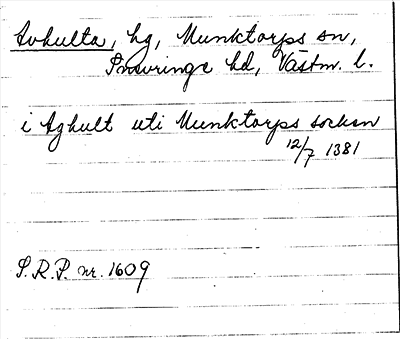 Avhulta, hg, Munktorps sn,
Snevringe hd, Västm. l.
i Aghult uti Munktorps socken
12/7 1381
S.R.P. nr. 1609